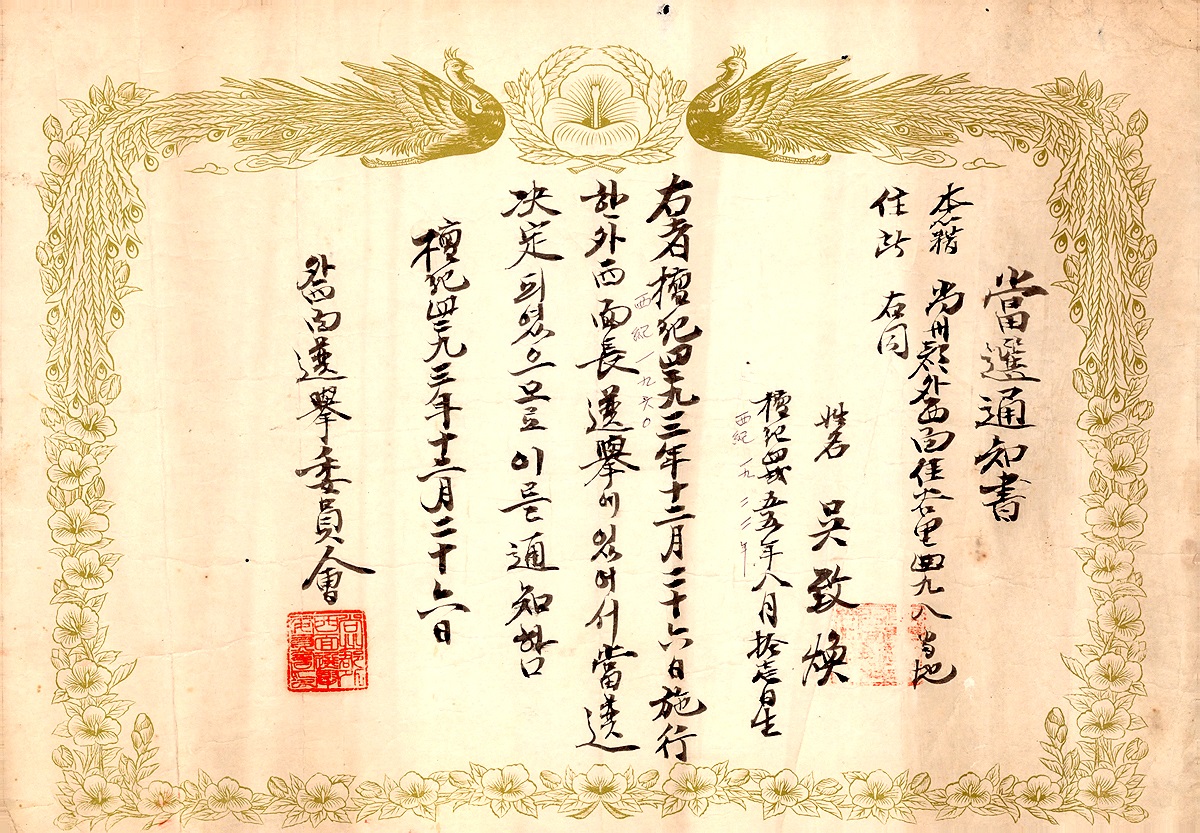 當選通知書
本籍 尚州郡外西面住谷里四九八番地
住所 右同
姓名 吳致煥
檀紀四貳五五年八月拾壱日生
西紀一九二二年
右者檀紀四二九三年十二月二十六日施行
西紀一九六0
한外西面長選擧에있어서當選
決定되였으므로이를通知함
檀紀四二九三年十二月二十六日
外西面選擧委員會